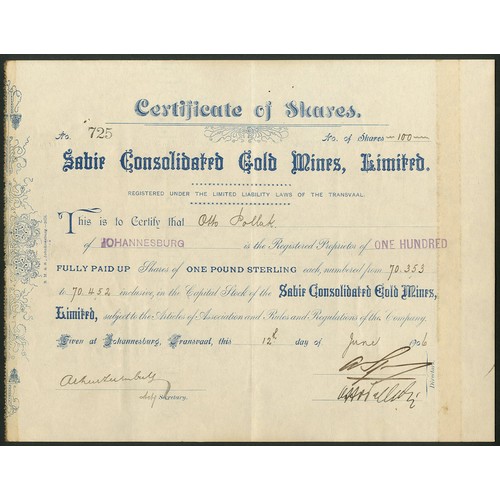 Certificate of Shares.
No. 725 No. of Shares 100
Sabie Consolidated Gold Mines, Limited.
REGISTERED UNDER THE LIMITED LIABILITY LAWS OF THE TRANSVAAL.
This is to Certify that Otto Pollak
of JOHANNESBURG is the Registered Proprietor of ONE HUNDRED
FULLY PAID UP Shares of ONE POUND STERLING each, numbered from 70.353
to 70.452 inclusive, in the Capital Stock of the Sabie Consolidated Gold Mines,
Limited, subject to the Articles of Association and Rules and Regulations of the Company.
Given at Johannesburg, Transvaal, this 12th day of June 1906
Secretary.